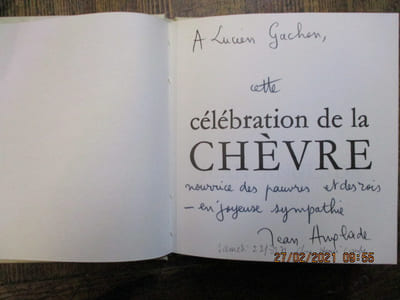 A Lucien Gachon,
cette
célébration de la
CHÈVRE
nourrice des pauvres et des rois
— en joyeuse sympathie
Jean Anglade
Samedi
27/02/2021 09:55